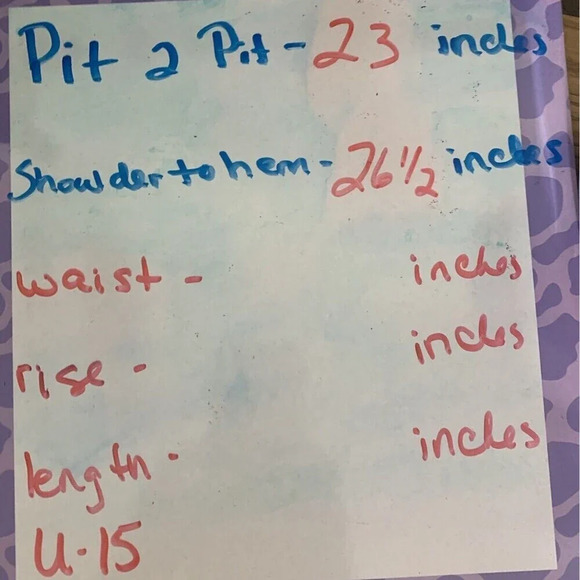 Pit 2 Pit - 23 inches
Showlder to hem - 26 1/2 inches
waist - inches
rise - inches
length - inches
U-15